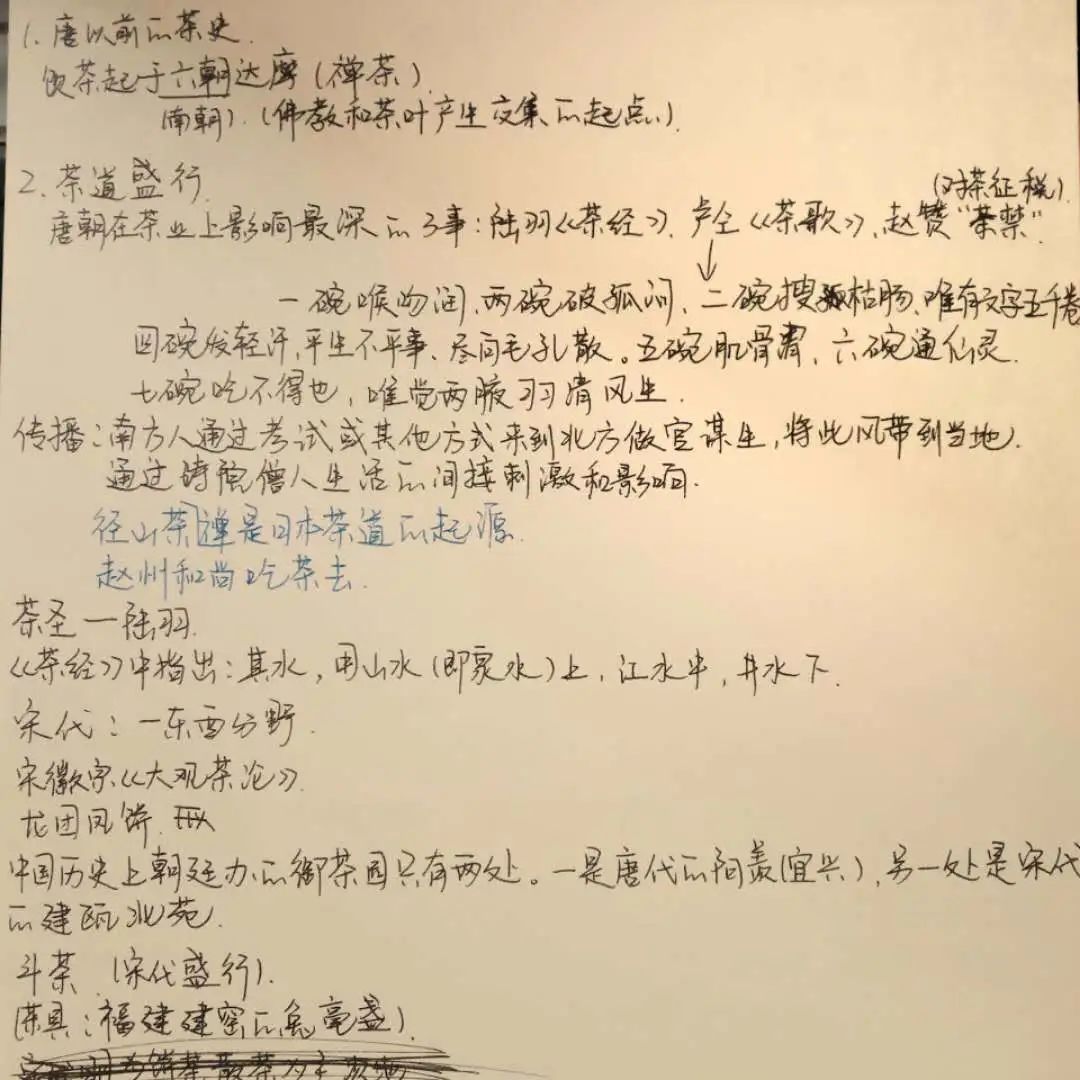 1. 唐以前的茶史.
饮茶起于六朝达摩(禅茶)
南朝).(佛教和茶叶产生交集的起点).
2. 茶道盛行.
(对茶征税).
唐朝在茶业上影响最深的3事:陆羽《茶经》、卢仝《茶歌》、赵赞"茶禁".
一碗喉吻润,两碗破孤闷,三碗搜枯肠,唯有文字五千卷
四碗发轻汗,平生不平事、尽向毛孔散。五碗肌骨清,六碗通仙灵.
七碗吃不得也,唯觉两腋习习清风生.
传播:南方人通过考试或其他方式来到北方做官谋生,将此风带到当地.
通过诗院僧人生活的间接刺激和影响.
径山茶禅是日本茶道的起源.
赵州和尚吃茶去.
茶圣一陆羽.
《茶经》中指出:其水,用山水(即泉水)上,江水中,井水下.
宋代:一东西分野.
宋徽宗《大观茶论》.
龙团凤饼.
中国历史上朝廷办的御茶园只有两处。一是唐代的阳羡(宜兴),另一处是宋代
的建瓯北苑.
斗茶.(宋代盛行).
(茶具:福建建窑的兔毫盏).